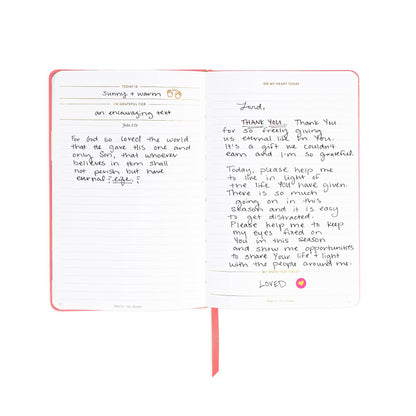 TODAY IS
sunny + warm
I'M GRATEFUL FOR
an encouraging text
John 3:16
For God so loved the world
that He gave His one and
only Son, that whoever
believes in Him shall
not perish but have
eternal life.
ON MY HEART TODAY
Lord,
THANK YOU. Thank You
for so freely giving
us eternal life in You.
It's a gift we couldn't
earn and I'm so grateful.
Today, please help me
to live in light of
the life You have given.
There is so much
going on in this
season and it is easy
to get distracted.
Please help me to keep
my eyes fixed on
You in this season
and show me opportunities
to share Your life + light
with the people around me.
MY WORD FOR TODAY
LOVED